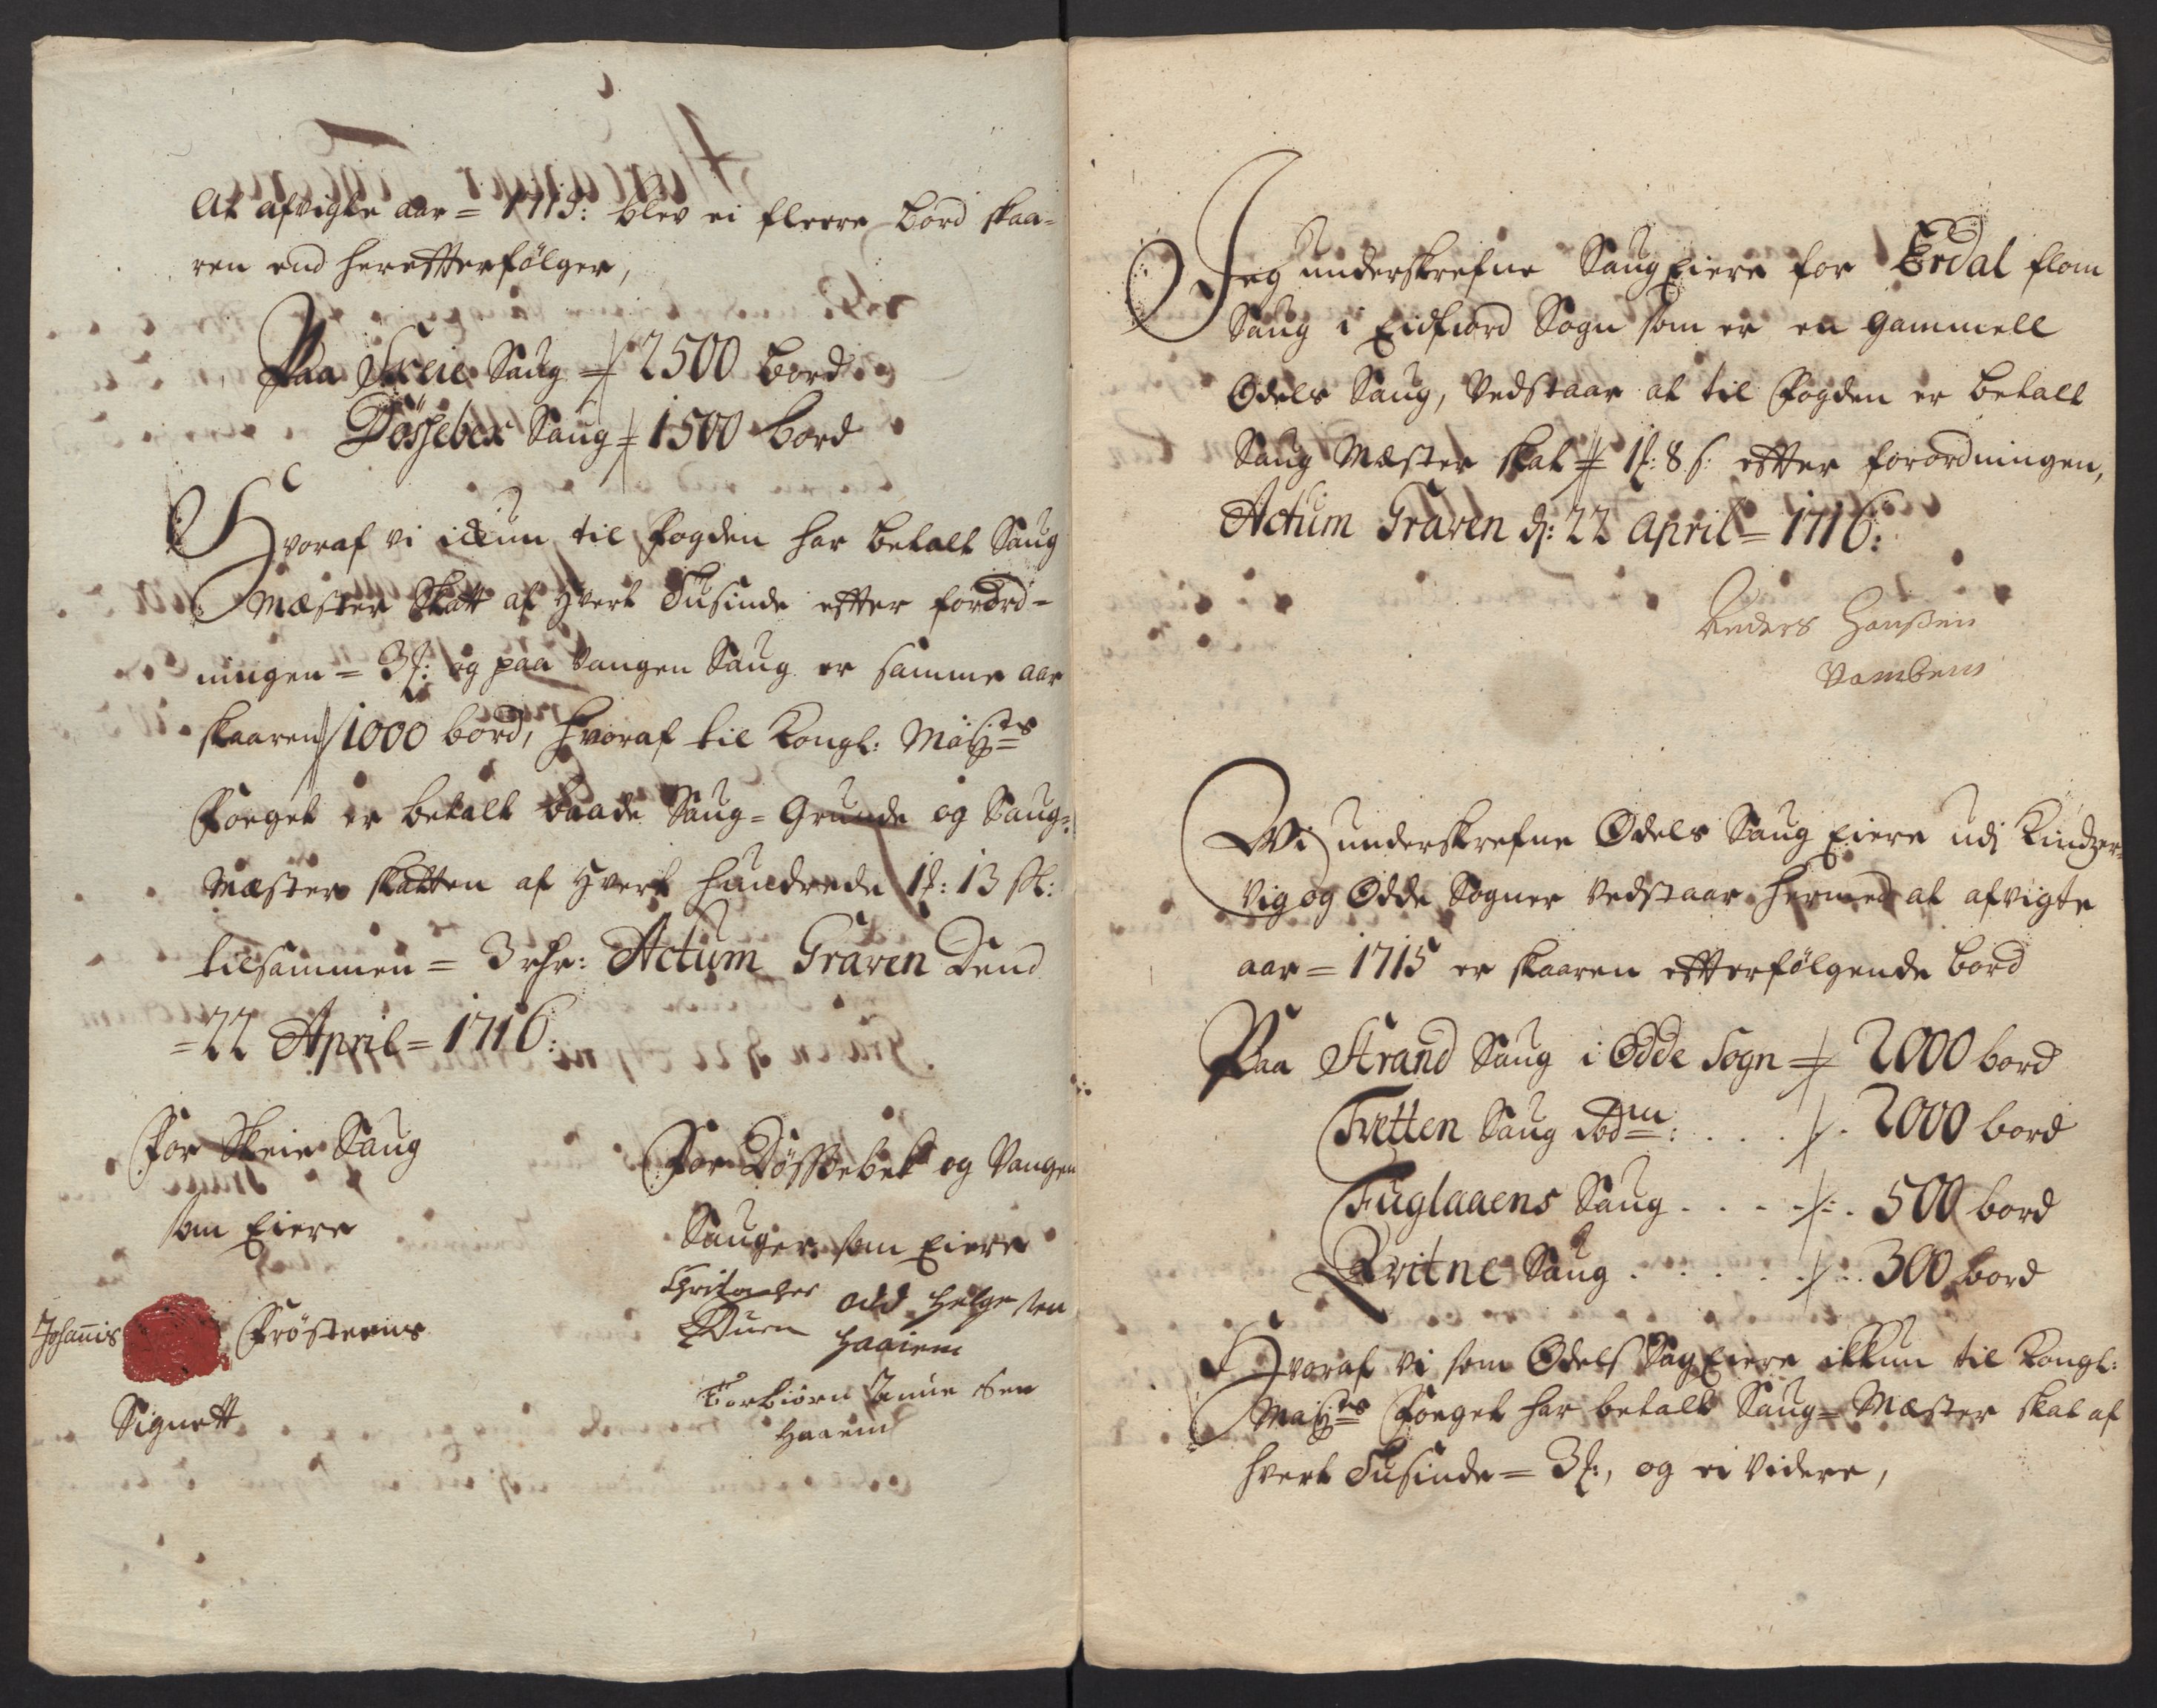 At afvigte aar = 1715: blev ei fleere bord skaa-
ren end heretterfølger,
Paa Skeie Saug = 2500 bord
Døssebek Saug = 1500 bord
Hvoraf vi ickun til Fogden har betalt Saug
Mæster Skatt af hvert Tusinde efter forord-
ningen = 3 ß: og paa Vangen Saug er samme aar
skaaren 1000 bord, hvoraf til Kongl: Mayts
Foeget er betalt baade Saug-Grunde og Saug-
Mæster skatten af hvert hundrede 1 ß: 13 sk:
tilsammen = 3 rdr: Actum Graven Dend
=22 April = 1716:
For Skeie Saug
som Eiere
Johannis Frøsteens
Signett
For Døssebek og Vangen
Sauger som Eiere
Christopher
odd Helgesen
haaiem
Torbiørn
Haaem
Jeg underskrefne Saug Eiere for Erdal flom
Saug i Eidfiord Sogn som er en gammell
Odels Saug, Vedstaar at til Fogden er betalt
Saug Mæster skat = 1 ß: 8 s: efter forordningen,
Actum Graven d: 22 April = 1716:
Anders Hanßen
Vambem
Wi underskrefne Odels Saug Eiere udi Kindzer-
vig og Odde Sogner Vedstaar hermed at afvigte
aar = 1715 er skaaren efterfølgende bord
Paa Strand Saug i Odde Sogn = 2000 bord
Tvetten Saug ibdm: . . . 2000 bord
Fuglaaens Saug . . . . 500 bord
Qvitne Saug . . . . . 300 bord
Hvoraf vi som Odels Sag Eiere ikkun til Kongl:
Mayts Foeget har betalt Saug-Mæster skat af
hvert Tusinde = 3 ß:, og ei videre,